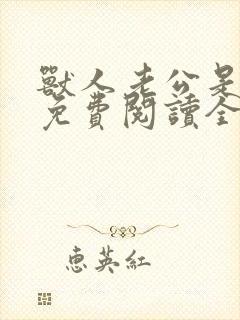 獸人老公是
免費閱讀全
惠英紅